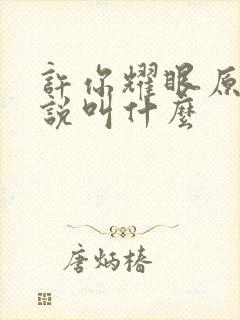 許你耀眼原
說叫什麼
唐炳椿